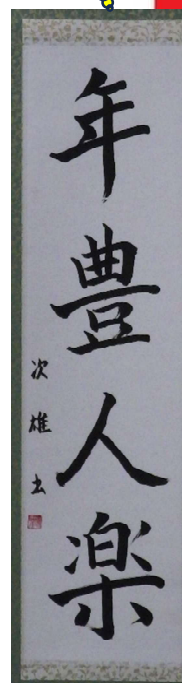 年豊人楽
次雄書